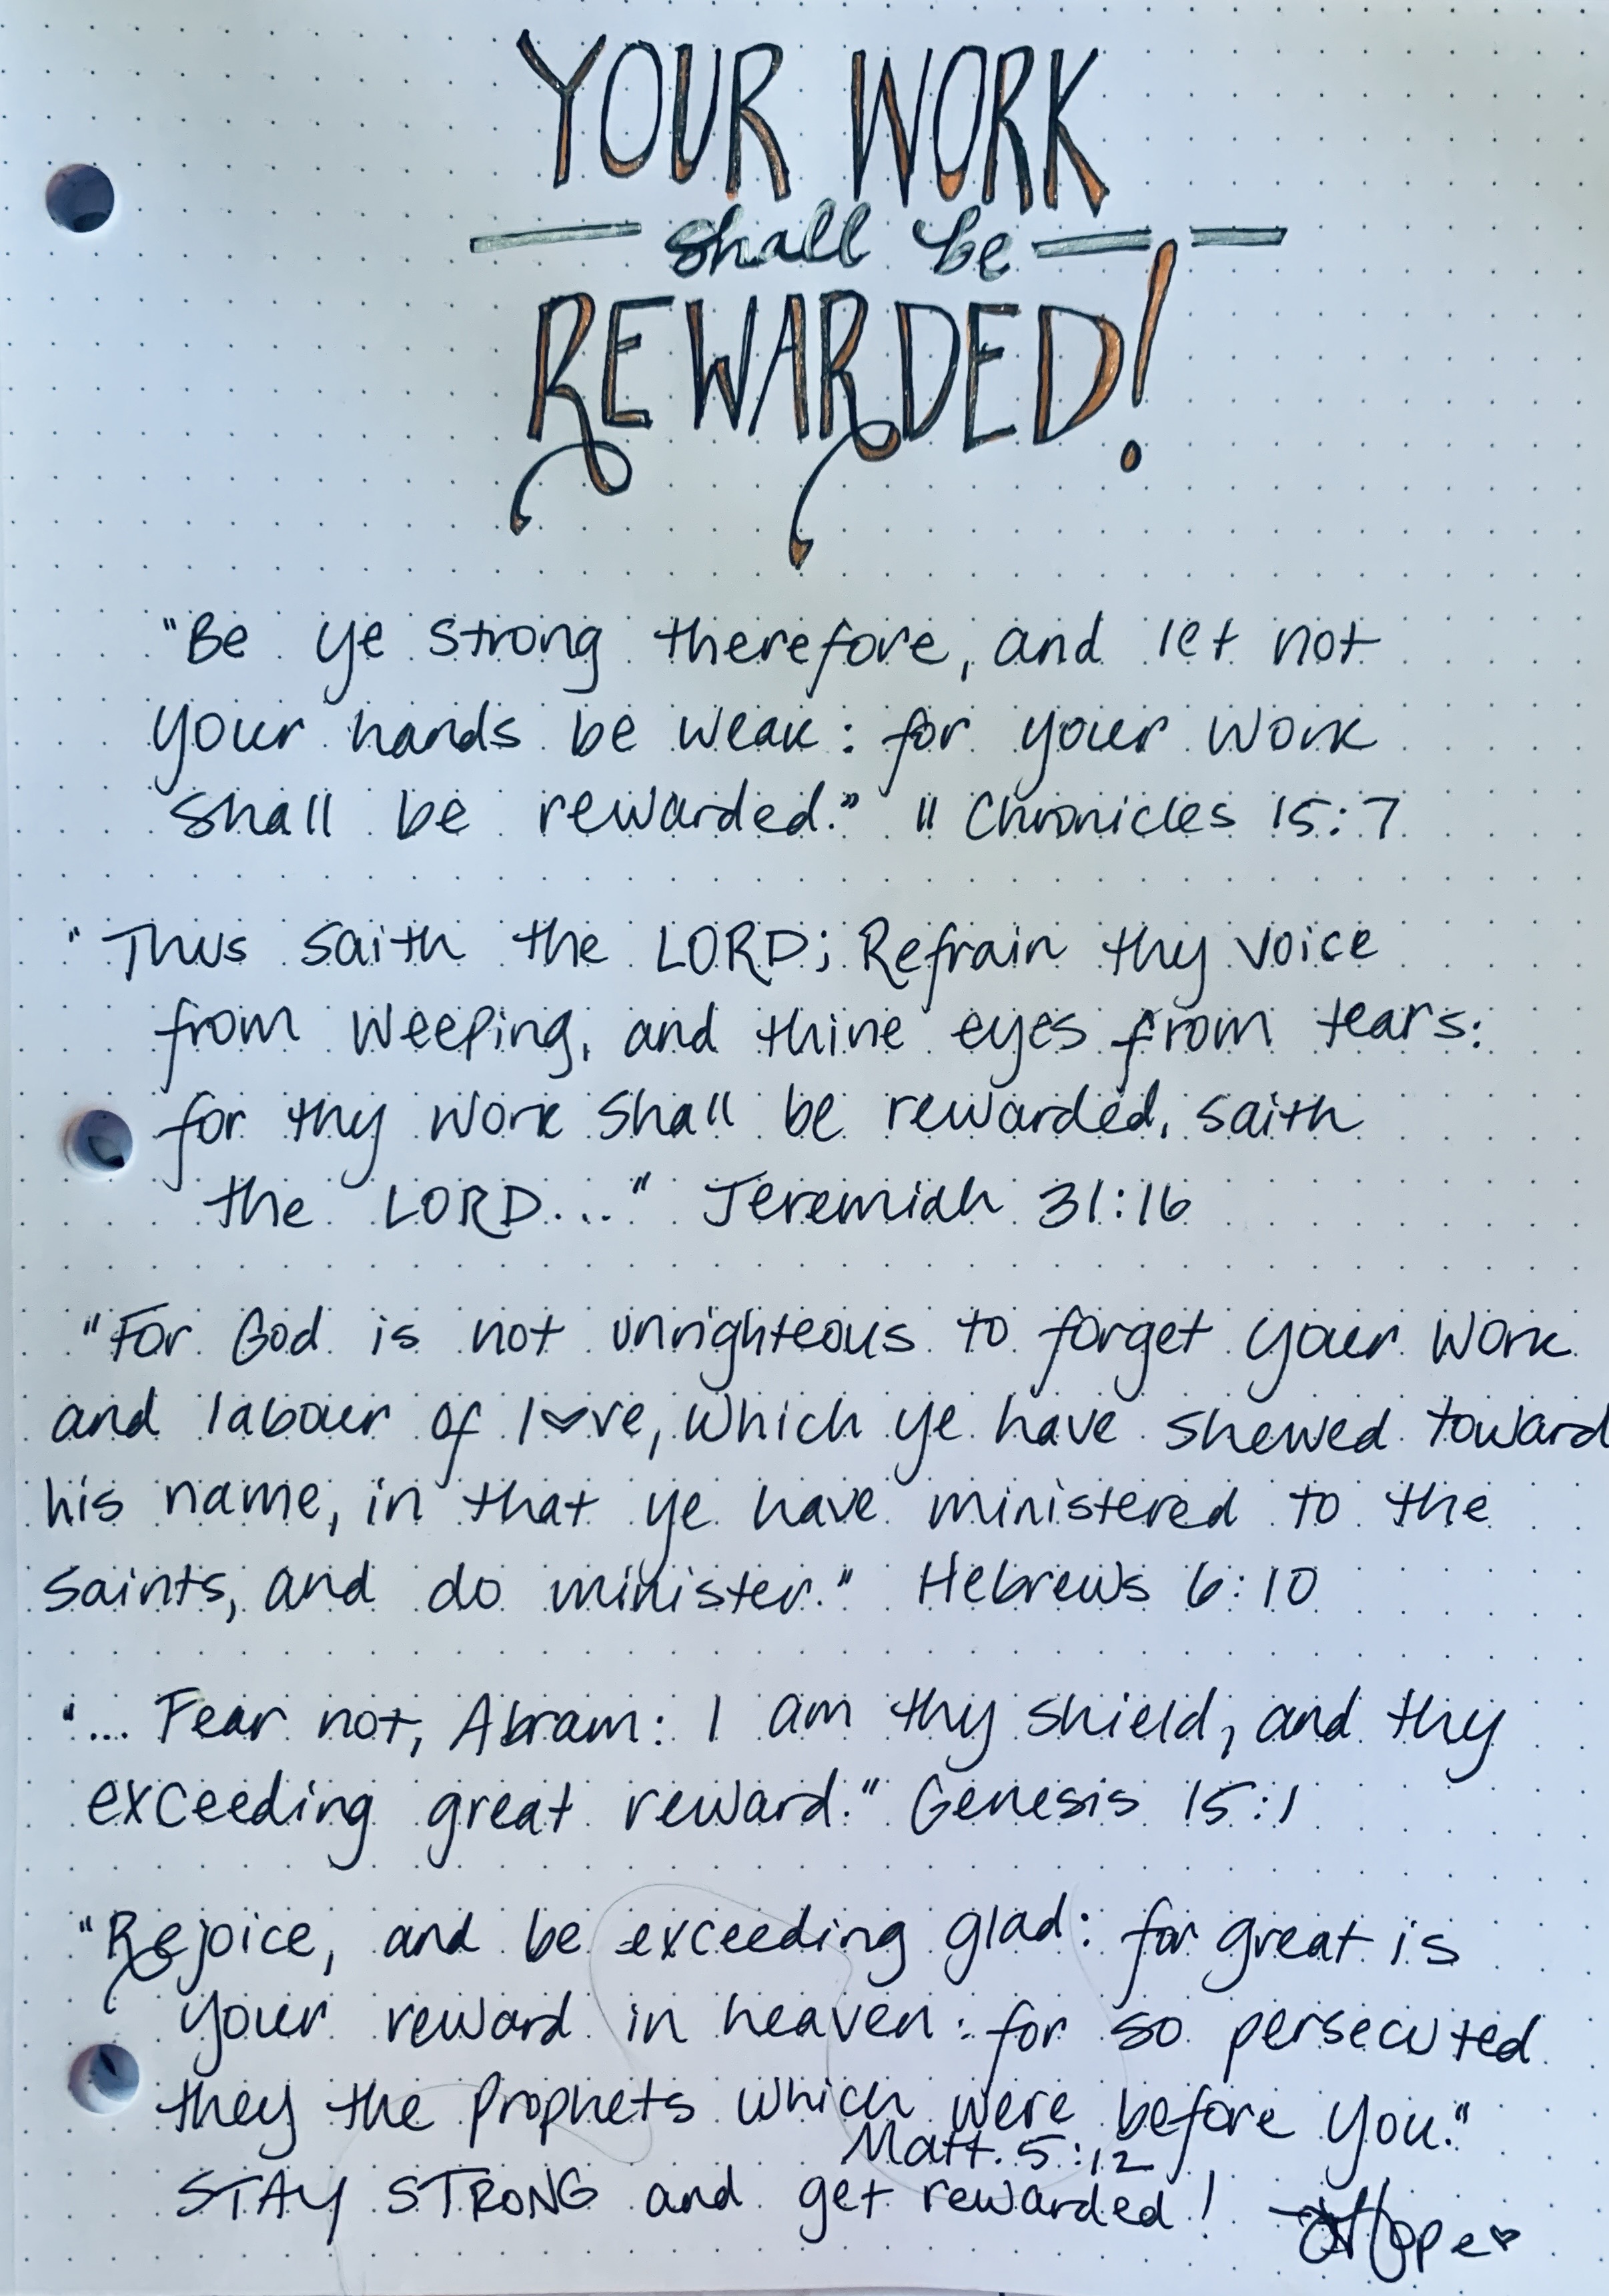 YOUR WORK
shall be
REWARDED!
"Be ye strong therefore, and let not
your hands be weak: for your work
shall be rewarded." II Chronicles 15:7
"Thus saith the LORD; Refrain thy voice
from weeping, and thine eyes from tears:
for thy work shall be rewarded, saith
the LORD..." Jeremiah 31:16
"For God is not unrighteous to forget your work
and labour of l♥ve, which ye have shewed toward
his name, in that ye have ministered to the
saints, and do minister." Hebrews 6:10
"... Fear not, Abram: I am thy shield, and thy
exceeding great reward." Genesis 15:1
"Rejoice, and be exceeding glad: for great is
your reward in heaven: for so persecuted
they the prophets which were before you."
Matt. 5:12
STAY STRONG and get rewarded! Hope♥